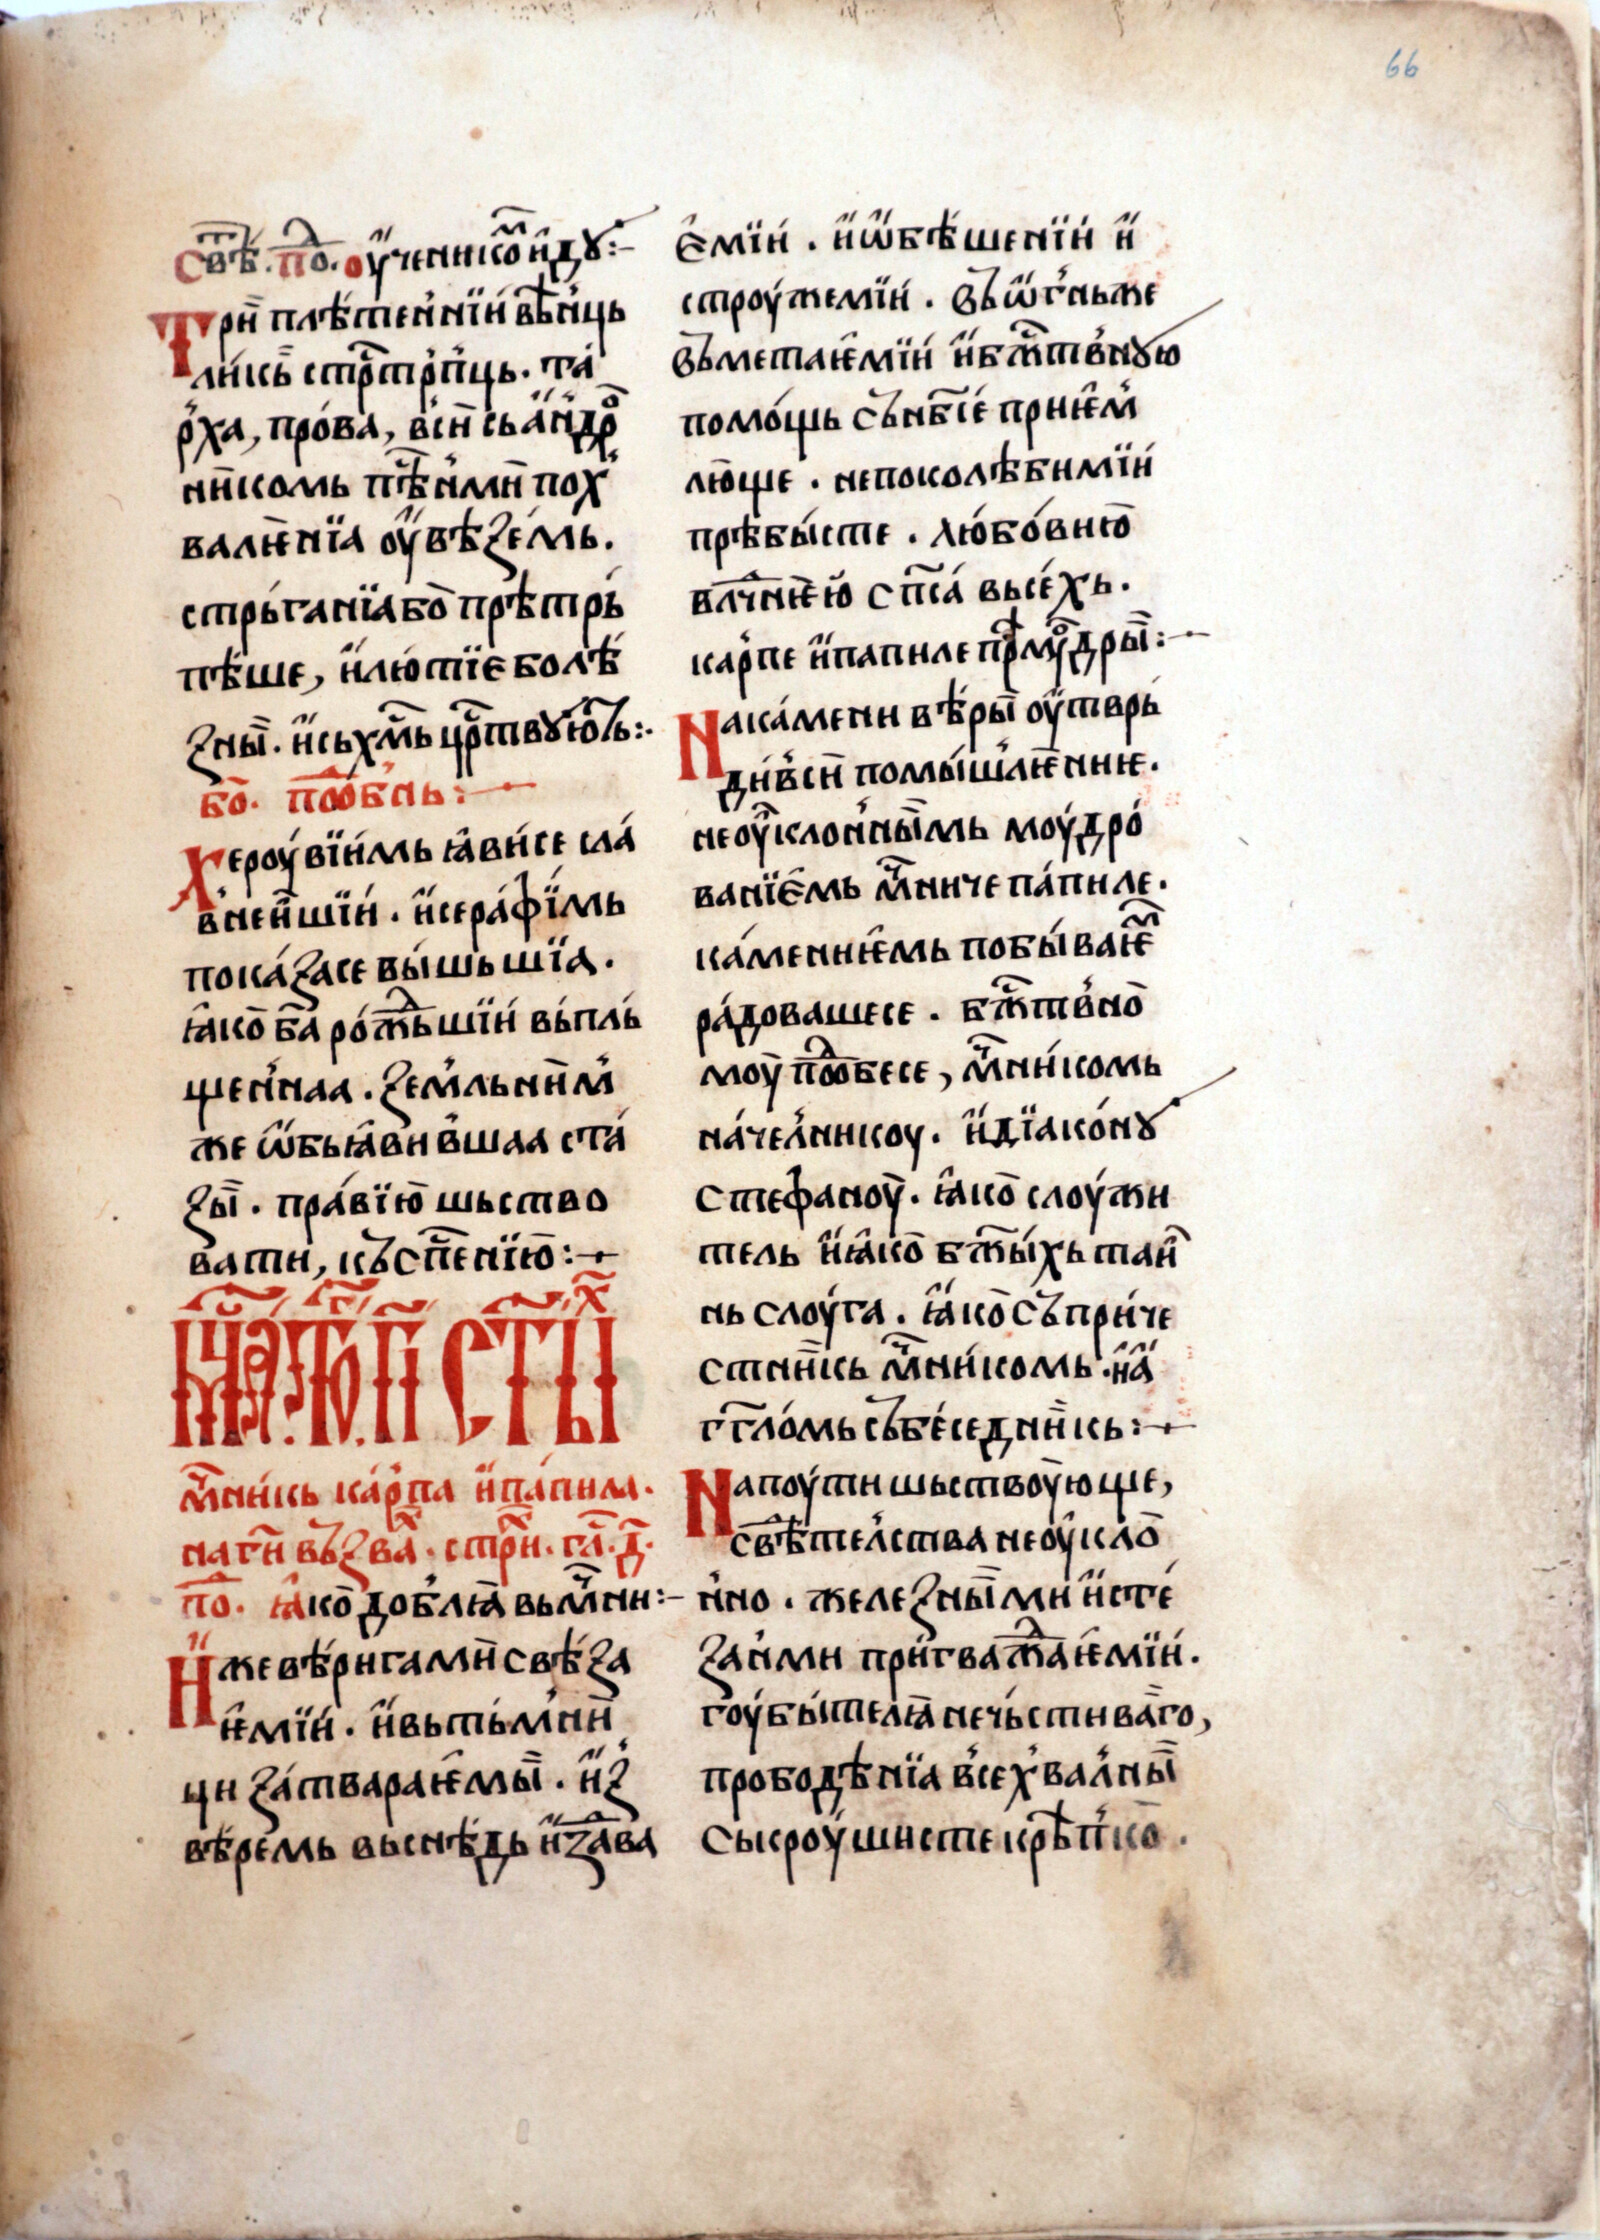 66
Свѣт҇. по҇д. оу҆ченнико҇м и҆ дꙋ:–
Трⷩ҇и плѣтен꙽нїи вѣн꙽ць
ли́кь ст҇рⷭ҇тр꙽п꙽ць. та́
р꙽ха, про́ва, в꙽си сь а҆н꙽дрⷪ҇
никомь пѣⷭ҇н꙽ми пох꙽
валѥ́нїа оу҆вѣзе́мь.
стрь́ганїа бо̀ прѣтрь́
пѣ́ше, и҆ лю́тїе болѣ́
зны̀. и҆ сь хмⷭ҇ь црⷭ҇твꙋю҆ть:·
бо҇. подⷪ҇б꙽нь:—
Хероувїи́мь ꙗ҆ви́се сла́
в꙽неи꙽шїи́. и҆ сера́фїмь
пока́засе вы́шьшїа.
ꙗ҆ко̀ ба҃ ро́ждⷣьшїи вь́пль́
щен꙽наа. зем꙽льни̑м꙽
же ѡ҆бьꙗ҆ви в꙽шаа ста́
зы̀. пра́вїю̀ шьство
вати, кь сп҃се́нїю̀:–
Мцⷭ҇а. тⷢ҇о. гі҃ стⷯ҇ы
мⷱ҇ни́кь ка́р꙽па и҆ па́пила.
на ги҃ вьзваⷯ҇. стрⷯ҇и. глⷭ҇. д҃.
поⷣ҇. ꙗ҆ко̀ доб꙽лꙗ вь мⷱ҇ни:–
И҆же вѣ́ригамѝ свѣ́за
ѥ҆мїи́. и҆ вь ть́м꙽ни̑
ци за́твараѥ҆мы̀. и҆ з꙽
вѣ́ремь вь снѣ́дь и҆зⷣ҇ава
е҆мїи́. и҆ ѡ҆бѣ́шенїи́ и҆
строу́жемїи́. вь ѡ҆г꙽нь же
вьметаѥ҆мїи́ и҆ бжⷭ҇тв꙽нꙋю
помо́щь сь нб҃се́ прїѥ҆м꙽
лю̀ще. непоколѣбимїи́
прѣбы́сте. лю́бо́вию̀
влⷣчнѥ́ю̀ сп҃са́ вьсе́хь.
ка́р꙽пе и҆ папиле прѣмⷣрꙋдры̀:–
На ка́мени вѣ́ры̀ оу҆тврь́
ди́в꙽си̑ помы́ш꙽лѥ̀ниѥ.
неоу҆клон꙽ны̀мь моу́дро́
ванїе҆мь мⷱ҇ниче па́пиле.
ка́менїѥ҆мь побы́ваѥⷨ҇
ра́довашесе. бжⷭ҇тв꙽но̀
моу̀ подⷪ҇бесе, мⷱ҇ни́комь
на́чел꙽никоу. и҆ дїако́нꙋ
стефаноу̀. ꙗ҆ко̀ слоу́жи
тель и҆ ꙗ҆ко̀ бжⷭ҇ты́хь таи꙽
нь слоуга. ꙗ҆ко̀ сь при́че
стни̑кь мⷱ҇ни́комь. и҆ а҆
гг҃ло́мь сьбе́седни̑кь:–
На поути шьствоу̀юще,
свⷣѣ́тел꙽ства неоу҆кло̀
н꙽но. железны̀ми и҆ сте́
зан꙽ми пригважⷣаѥ҆мїи́.
гоубы́телꙗ нечь́стива̀го,
прободѣнїа в꙽сех꙽вал꙽ны̀
ськроушисте крѣп꙽ко̀.